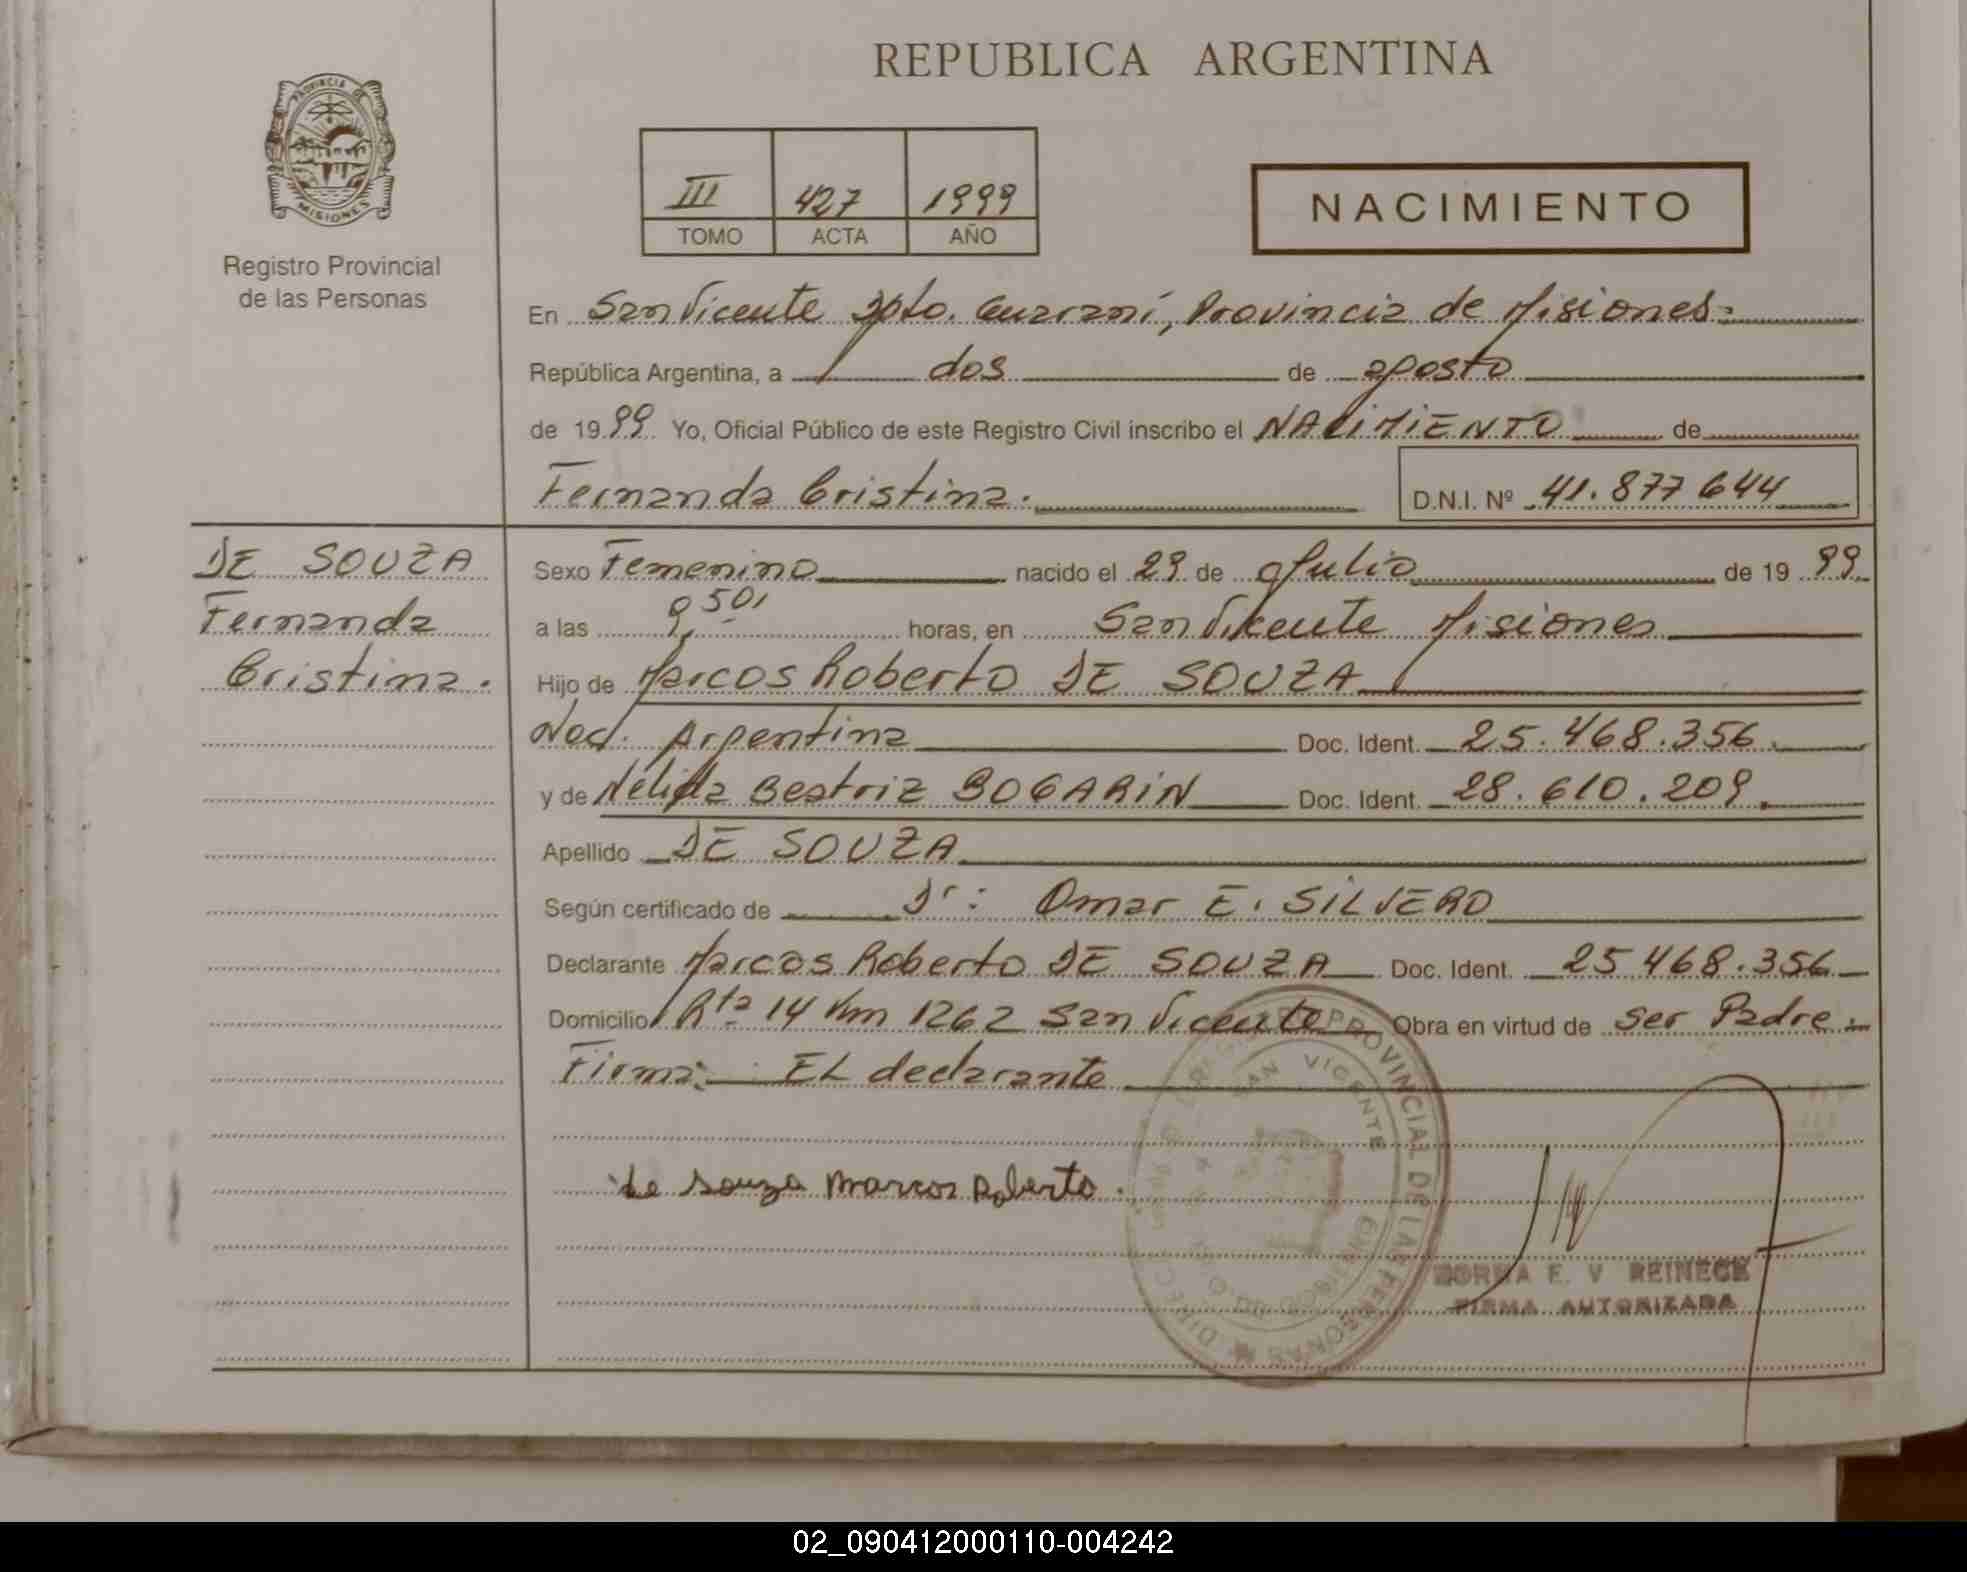 REPUBLICA ARGENTINA
PROVINCIA DE
MISIONES
Registro Provincial
de las Personas
III 427 1999
TOMO ACTA AÑO
NACIMIENTO
En San Vicente Dpto. Guaraní, Provincia de Misiones
República Argentina, a dos de agosto
de 1999 Yo, Oficial Público de este Registro Civil inscribo el NACIMIENTO de
Fernanda Cristina. D.N.I. Nº 41.877 644
DE SOUZA
Fernanda
Cristina.
Sexo Femenino nacido el 29 de Julio de 1999
a las 9,50 horas, en San Vicente Misiones
Hijo de Marcos Roberto DE SOUZA
Nac. Argentina Doc. Ident. 25.468.356
y de Nelida Beatriz BOGARIN Doc. Ident. 28.610.209
Apellido DE SOUZA
Según certificado de Dr: Omar E. SILVERO
Declarante Marcos Roberto DE SOUZA Doc. Ident. 25 468.356
Domicilio Rta 14 Km 1262 San Vicente Obra en virtud de ser Padre
Firma: EL declarante
de Souza Marcos Roberto.
PROVINCIAL DE LAS PERSONAS
SAN VICENTE
NORMA E. V REINECK
FIRMA AUTORIZADA
02_090412000110-004242